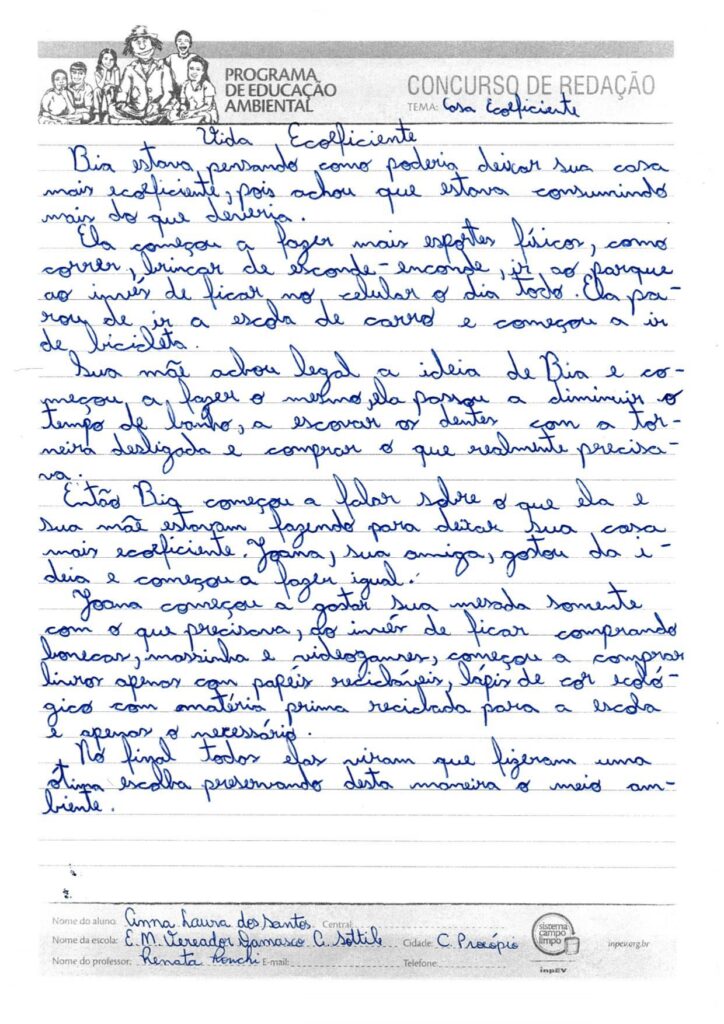 PROGRAMA
DE EDUCAÇÃO
AMBIENTAL
CONCURSO DE REDAÇÃO
TEMA: Casa Ecoeficiente
Vida Ecoeficiente
Bia estava pensando como poderia deixar sua casa
mais ecoeficiente, pois achou que estava consumindo
mais do que deveria.
Ela começou a fazer mais esportes físicos, como
correr, brincar de esconde-enconde, ir ao parque
ao invés de ficar no celular o dia todo. Ela pa-
rou de ir a escola de carro e começou a ir
de bicicleta.
Sua mãe achou legal a ideia de Bia e co-
meçou a fazer o mesmo, ela passou a diminuir o
tempo de banho, a escovar os dentes com a tor-
neira desligada e comprar o que realmente precisa-
va.
Então Bia começou a falar sobre o que ela e
sua mãe estavam fazendo para deixar sua casa
mais ecoeficiente. Joana, sua amiga, gostou da i-
deia e começou a fazer igual.
Joana começou a gastar sua mesada somente
com o que precisava, ao invés de ficar comprando
bonecas, massinha e videogames, começou a comprar
livros apenas com papéis recicláveis, lápis de cor ecoló-
gico com matéria prima reciclada para a escola
e apenas o necessário.
No final todos elas viram que fizeram uma
ótima escolha preservando desta maneira o meio am-
biente.
Nome do aluno: Anna Laura dos Santos Central:
Nome da escola: E. M. Vereador Damasco C. Sottile Cidade: C. Procópio
Nome do professor: Renata Ronchi E-mail: Telefone:
sistema
campo
limpo
inpEV
inpev.org.br